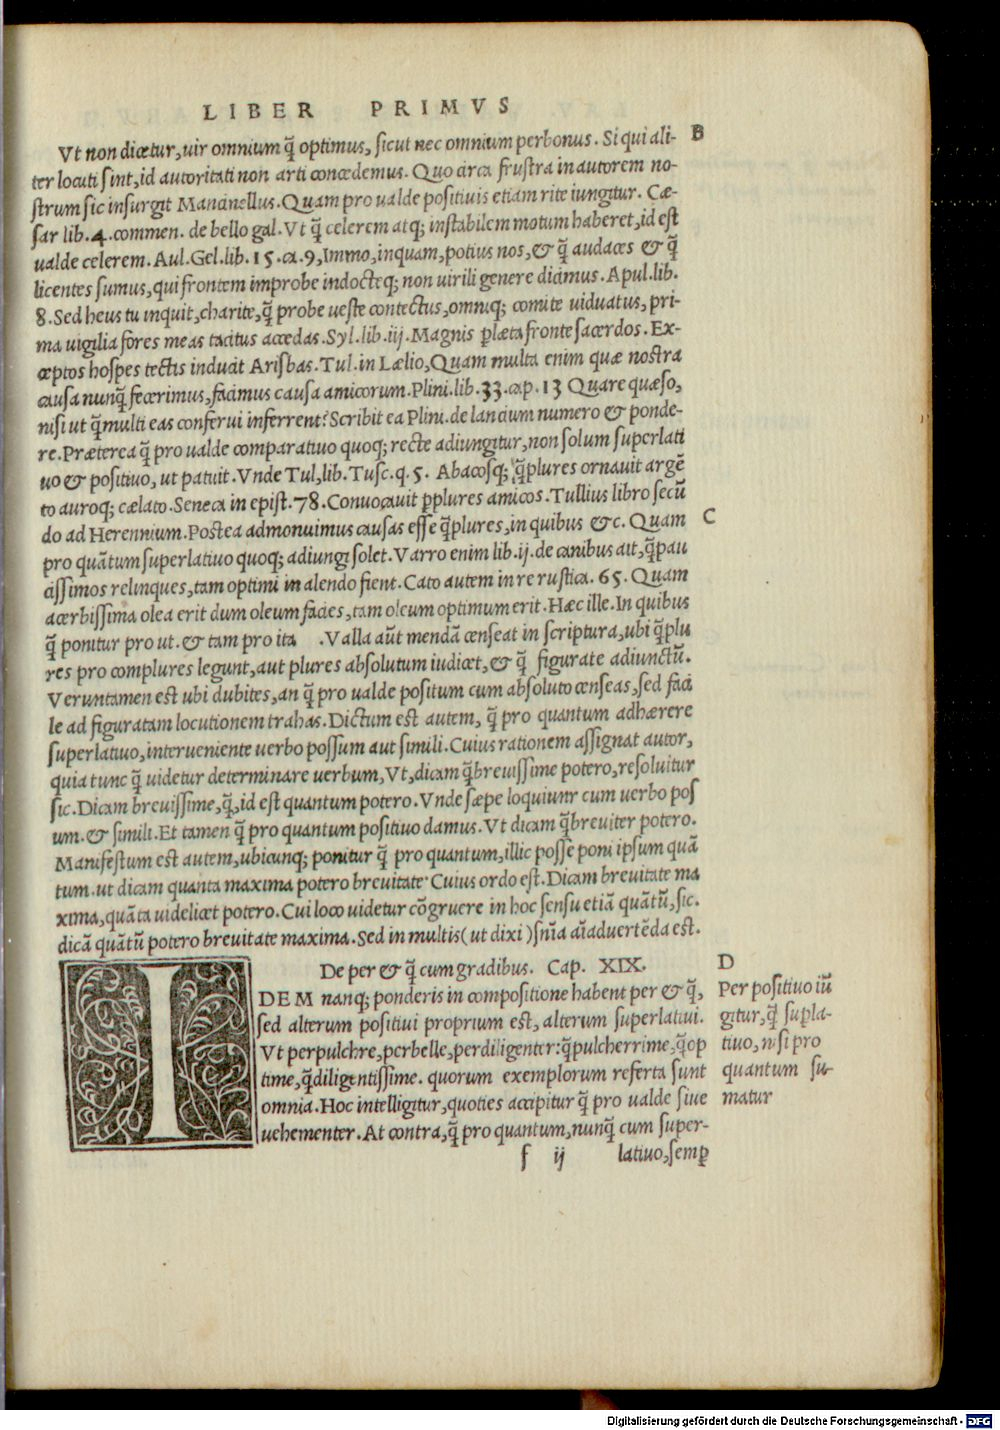 LIBER PRIMVS
Vt non dicetur, uir omnium q̃ optimus, sicut nec omnium perbonus. Si qui ali-
B
ter locuti sint, id autoritati non arti concedemus. Quo circa frustra in autorem no-
strum sic insurgit Mancinellus. Quam pro ualde positiuis etiam rite iungitur. Cæ-
sar lib. 4. commen. de bello gal. Vt q̃ celerem atq; instabilem motum haberet, id est
ualde celerem. Aul. Gel. lib. 15. ca. 9, Immo, inquam, potius nos, & q̃ audaces & q̃
licentes sumus, qui frontem improbe indocteq; non uirili genere dicimus. Apul. lib.
8. Sed heus tu inquit, charite, q̃ probe ueste contectus, omniq; comite uiduatus, pri-
ma uigilia fores meas tacitus accedas. Syl. lib. iij. Magnis p̱læta fronte sacerdos. Ex-
ceptos hospes tectis induat Arisbas. Tul. in Lælio, Quam multa enim quæ nostra
causa nunq̃ fecerimus, facimus causa amicorum. Plini. lib. 33. cap. 13 Quare quæso,
nisi ut q̃multi eas conserui inferrent? Scribit ea Plini. de lancium numero & ponde-
re. Præterea q̃ pro ualde comparatiuo quoq; recte adiungitur, non solum superlati
uo & positiuo, ut patuit. Vnde Tul, lib. Tusc. q. 5. Abacosq; q̃plures ornauit argẽ
to auroq; cælato. Seneca in epist. 78. Conuocauit p̱plures amicos. Tullius libro secũ
do ad Herennium. Postea admonuimus causas esse q̃plures, in quibus &c. Quam
C
pro quãtum superlatiuo quoq; adiungi solet. Varro enim lib. ij. de canibus ait, q̃pau
cissimos relinques, tam optimi in alendo fient. Cato autem in re rustica. 65. Quam
acerbissima olea erit dum oleum facies, tam oleum optimum erit. Hæc ille. In quibus
q̃ ponitur pro ut. & tam pro ita . Valla aũt mendã censeat in scriptura, ubi q̃plu
res pro complures legunt, aut plures absolutum iudicet, & q̃ figurate adiunctũ.
Veruntamen est ubi dubites, an q̃ pro ualde positum cum absoluto censeas, sed faci
le ad figuratam locutionem trahas. Dictum est autem, q̃ pro quantum adhærere
superlatiuo, interueniente uerbo possum aut simili. Cuius rationem assignat autor,
quia tunc q̃ uidetur determinare uerbum, Vt, dicam q̃breuissime potero, resoluitur
sic. Dicam breuissime, q̃, id est quantum potero. Vnde sæpe loquiunr cum uerbo pos
um. & simili. Et tamen q̃ pro quantum positiuo damus. Vt dicam q̃breuiter potero.
Manifestum est autem, ubicunq; ponitur q̃ pro quantum, illic posse poni ipsum quã
tum. ut dicam quanta maxima potero breuitate. Cuius ordo est. Dicam breuitate ma
xima, quãta uidelicet potero. Cui loco uidetur cõgruere in hoc sensu etiã quãtũ, sic.
dicã quãtũ potero breuitate maxima. Sed in multis (ut dixi) sñia aĩaduertẽda est.
De per & q̃ cum gradibus. Cap. XIX.
IDEM nanq; ponderis in compositione habent per & q̃,
sed alterum positiui proprium est, alterum superlatiui.
Vt perpulchre, perbelle, perdiligenter: q̃pulcherrime, q̃op
time, q̃diligentissime. quorum exemplorum referta sunt
omnia. Hoc intelligitur, quoties accipitur q̃ pro ualde siue
uehementer. At contra, q̃ pro quantum, nunq̃ cum super-
D
Per positiuo iũ
gitur, q̃ sup̱la-
tiuo, nisi pro
quantum su-
matur
f ij latiuo, semp̱
Digitalisierung gefördert durch die Deutsche Forschungsgemeinschaft - DFG